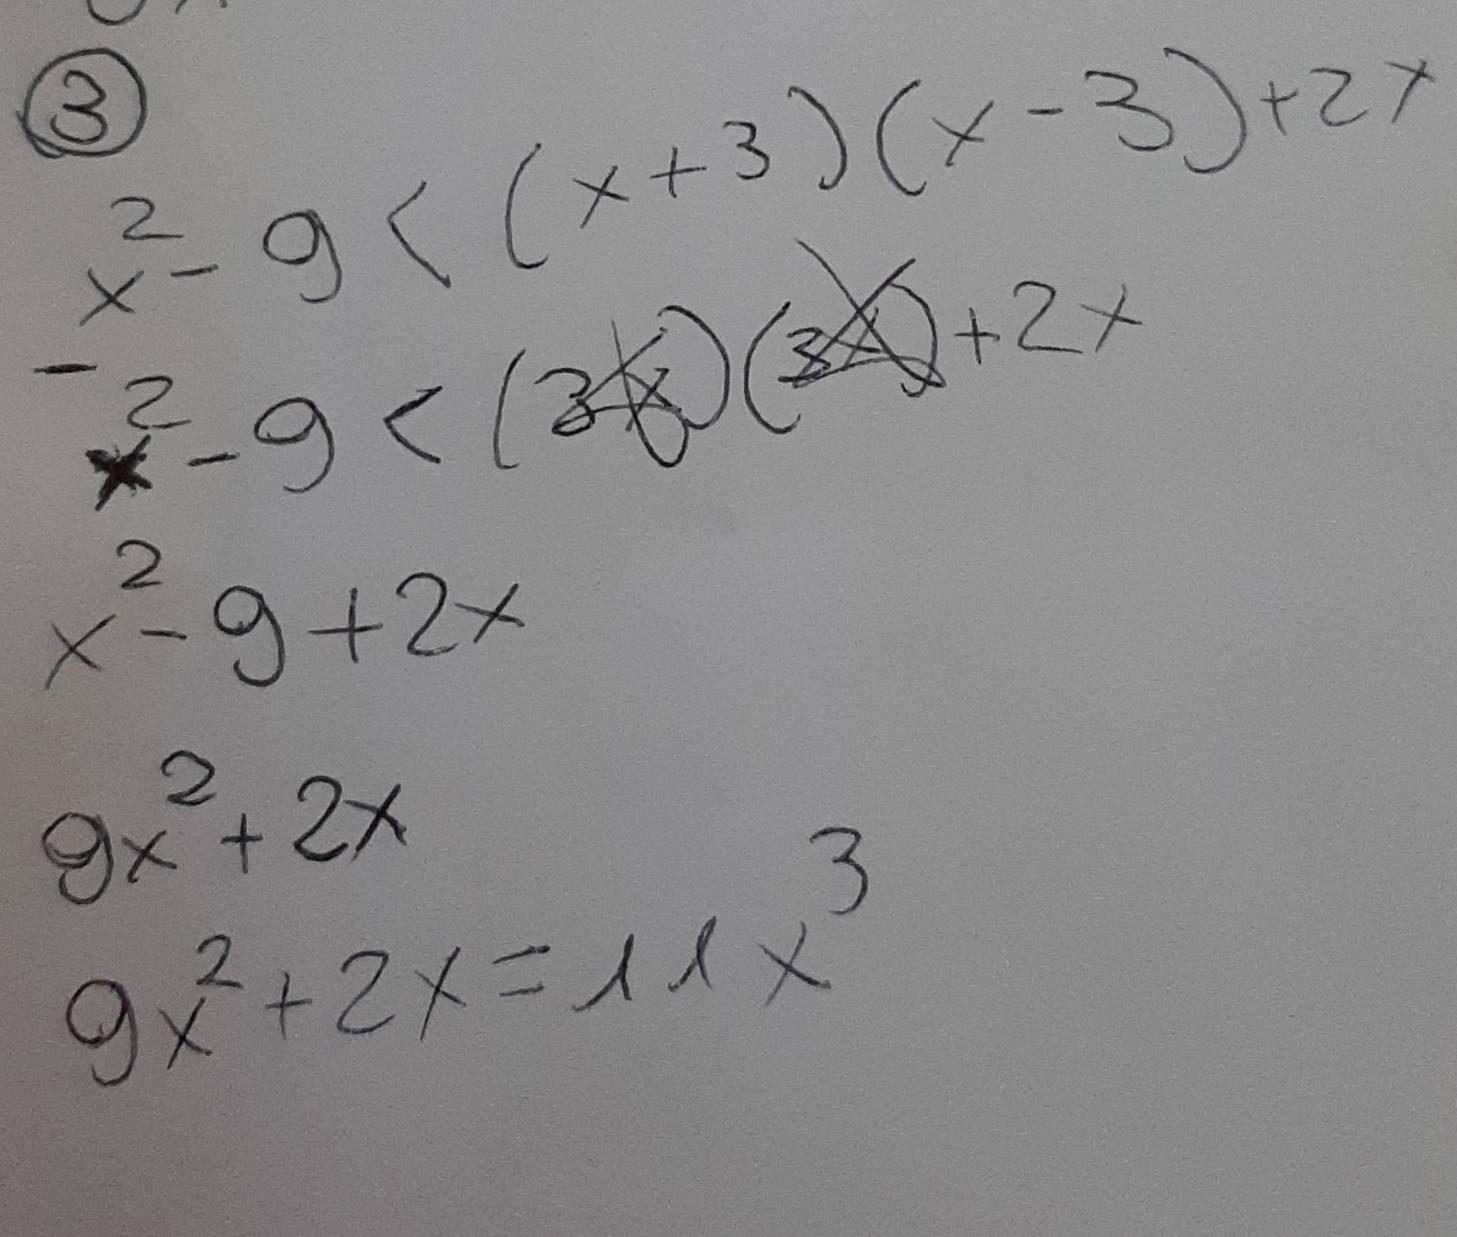 ③
x² - 9 < (x + 3)(x - 3) + 2x
x² - 9 < (3x)(3x) + 2x
x² - 9 + 2x
9x² + 2x
9x² + 2x = 11x³